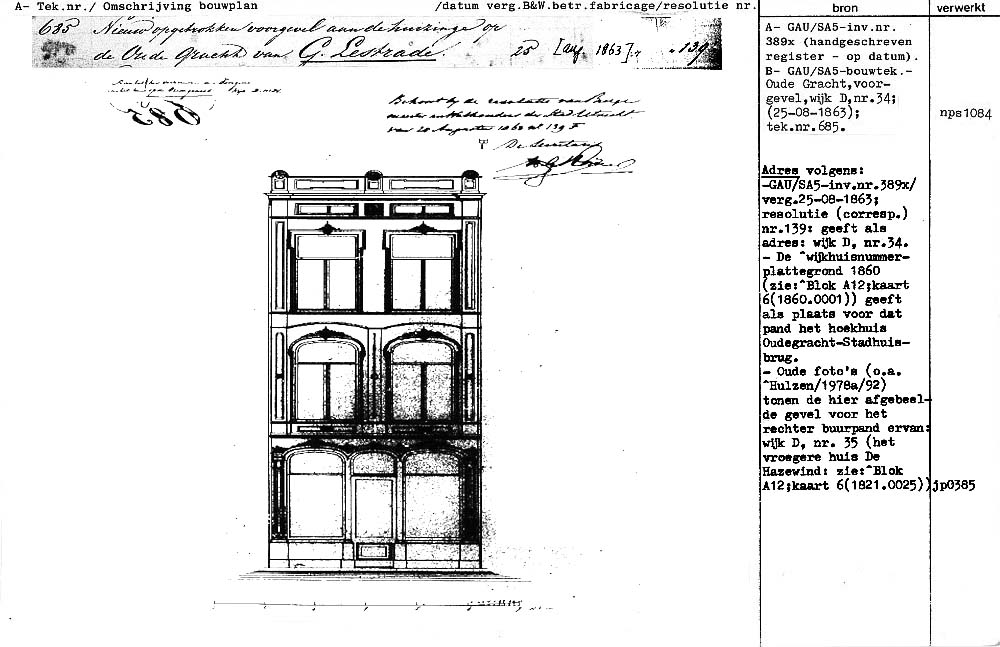 A- Tek.nr./ Omschrijving bouwplan /datum verg.B&W.betr.fabricage/resolutie nr.
bron
verwerkt
685 Nieuw opgetrokken voorgevel aan de huizinge op
de Oude Gracht van G. Lestrade. 25 [aug. 1863]. " 139
685
Behoort bij de resolutie van Burge
meester en Wethouders der Stad Utrecht
van 25 Augustus 1863 no 139 F
De Secretaris
A- GAU/SA5-inv.nr.
389x (handgeschreven
register - op datum).
B- GAU/SA5-bouwtek.-
Oude Gracht,voor-
gevel,wijk D,nr.34;
(25-08-1863);
tek.nr.685.
nps1084
Adres volgens:
-GAU/SA5-inv.nr.389x/
verg.25-08-1863;
resolutie (corresp.)
nr.139: geeft als
adres: wijk D, nr.34.
- De ^wijkhuisnummer-
plattegrond 1860
(zie:^Blok A12;kaart
6(1860.0001)) geeft
als plaats voor dat
pand het hoekhuis
Oudegracht-Stadhuis-
brug.
- Oude foto's (o.a.
^Hulzen/1978a/92)
tonen de hier afgebeel-
de gevel voor het
rechter buurpand ervan:
wijk D, nr. 35 (het
vroegere huis De
Hazewind: zie:^Blok
A12;kaart 6(1821.0025))jp0385